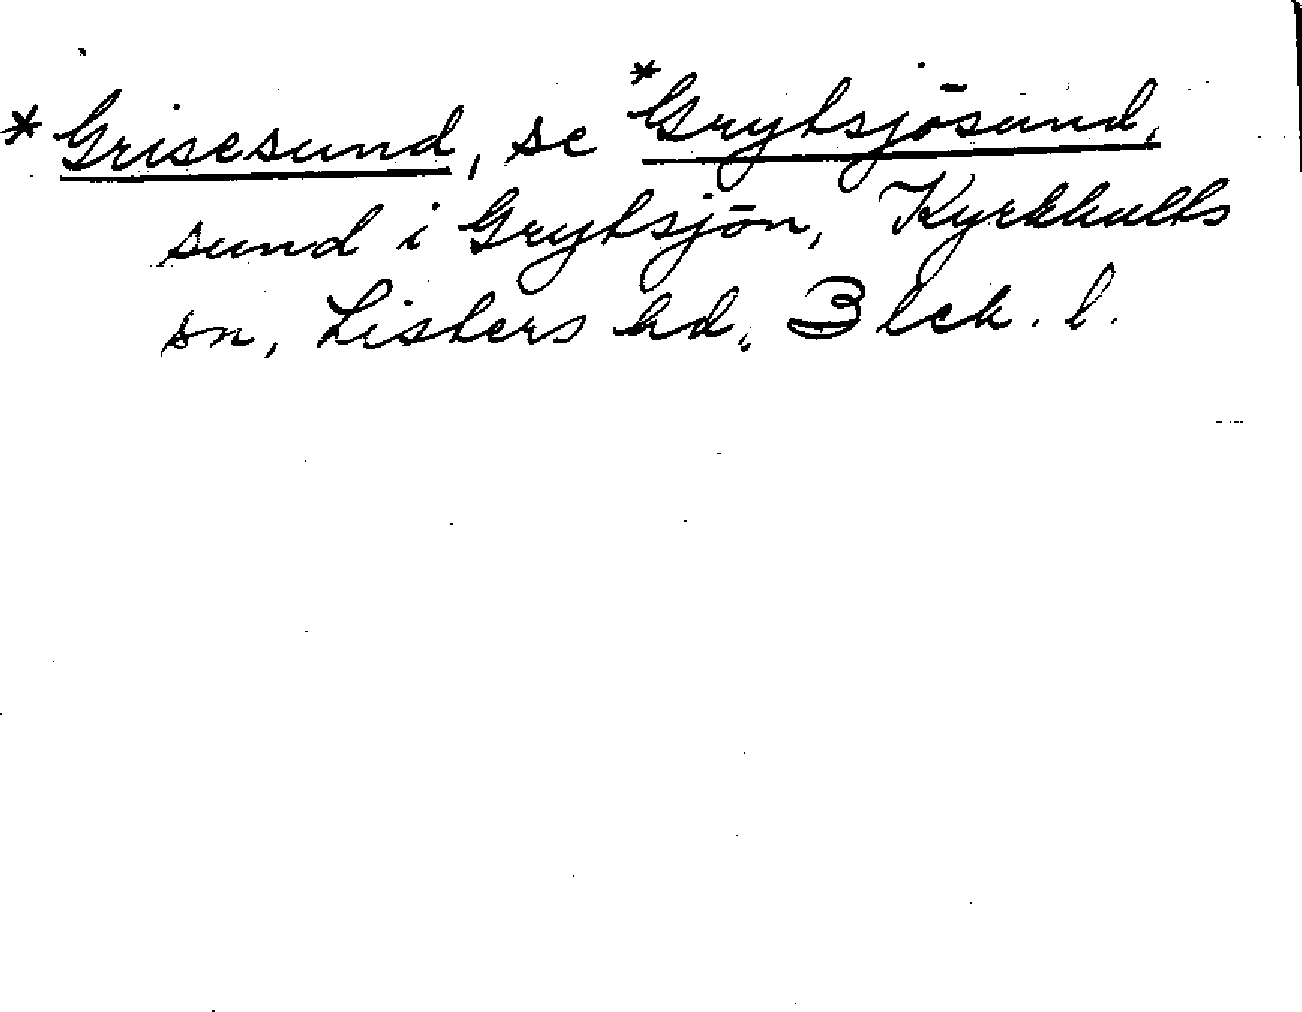 * Grisesund, se *Grytsjösund,
sund i Grytsjön, Kyrkhults
sn, Listers hd, Blek. l.